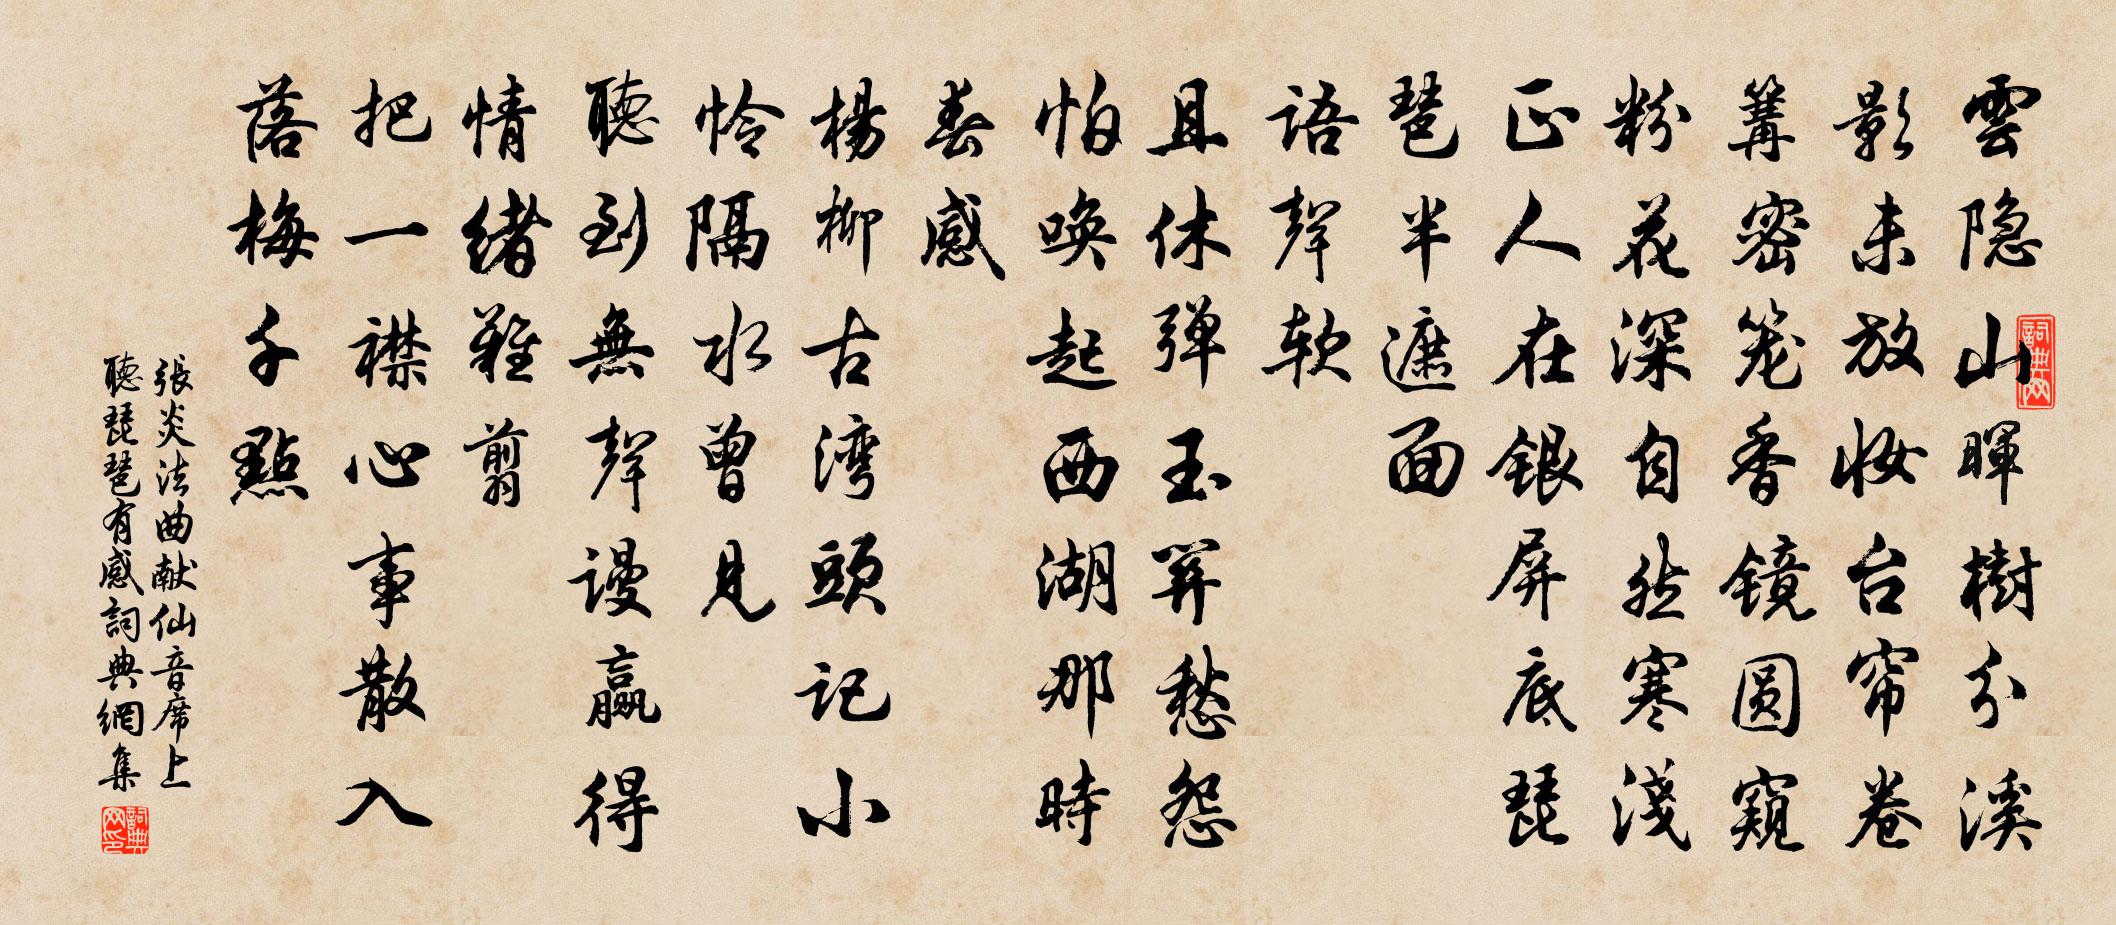 雲隐山暉樹分溪
影未放妆台帘卷
篝密笼香镜圆窺
粉花深自然寒淺
正人在银屏底琵
琶半遮面
語聲软
且休弹玉关愁怨
怕唤起西湖那時
春感
楊柳古湾頭記小
怜隔水曾見
聽到無聲谩赢得
情绪難剪
把一襟心事散入
落梅千點
張炎法曲献仙音席上
聽琵琶有感詞典網集
詞典网
詞典网印